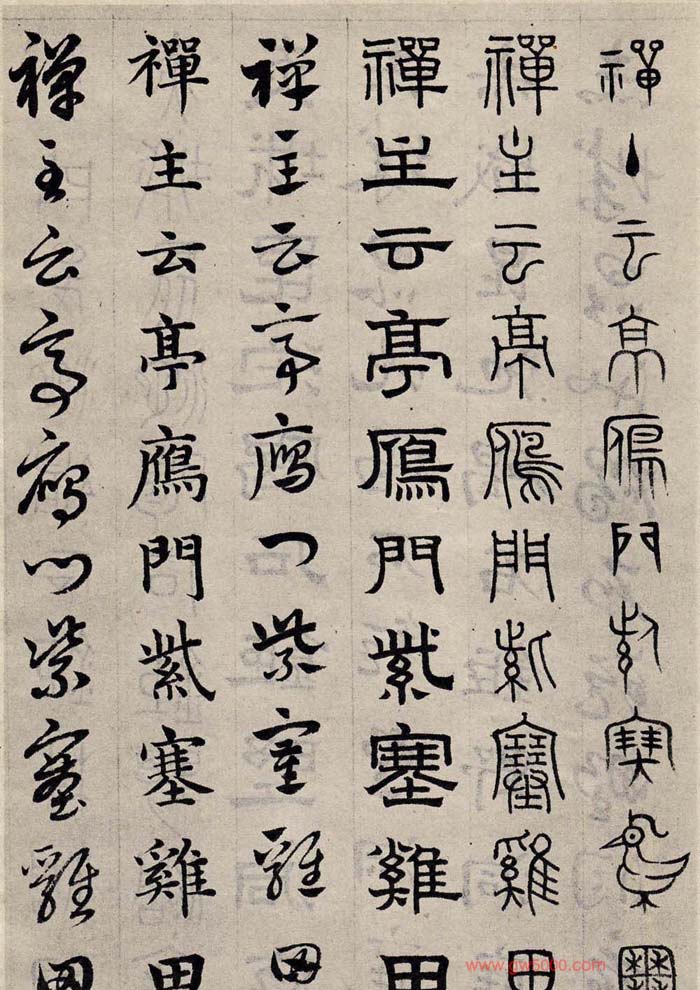 禪主云亭鴈門紫塞雞田
禪主云亭鴈門紫塞雞田
禪主云亭鴈門紫塞雞田
禪主云亭鴈門紫塞雞田
禪主云亭鴈門紫塞雞田
禪主云亭鴈門紫塞雞田
www.gw5000.com